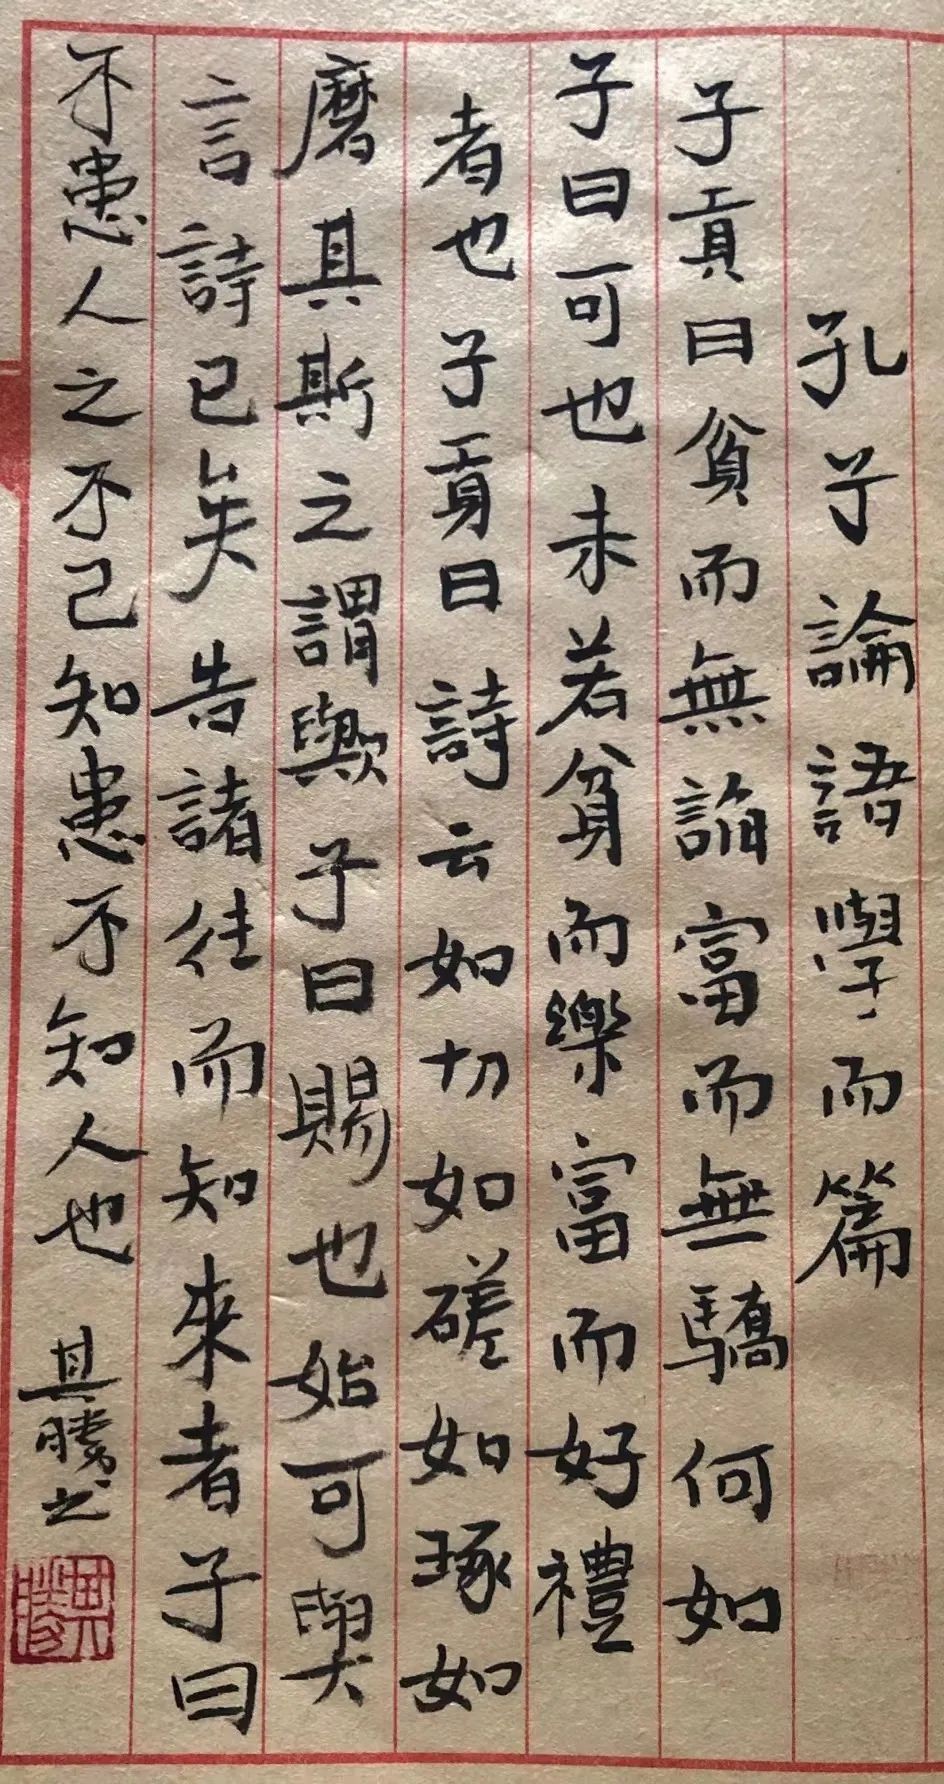 孔子論語學而篇
子貢曰貧而無諂富而無驕何如
子曰可也未若貧而樂富而好禮
者也子貢曰詩云如切如磋如琢如
磨其斯之謂歟子曰賜也始可與
言詩已矣告諸往而知來者子曰
不患人之不己知患不知人也 其勝之